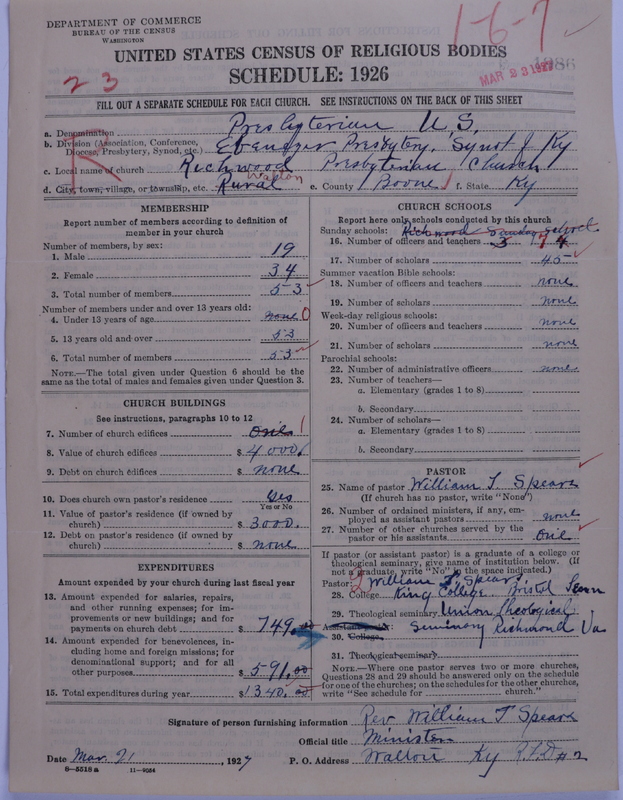 DEPARTMENT OF COMMERCE
BUREAU OF THE CENSUS
WASHINGTON
1-6-7
UNITED STATES CENSUS OF RELIGIOUS BODIES
SCHEDULE: 1926
2 3
MAR 23 1927
FILL OUT A SEPARATE SCHEDULE FOR EACH CHURCH. SEE INSTRUCTIONS ON THE BACK OF THIS SHEET
a. Denomination Presbyterian U.S.
b. Division (Association, Conference, Diocese, Presbytery, Synod, etc.) Ebenezer Presbytery, Synod of Ky
R
c. Local name of church Richwood Presbyterian Church
Walton
d. City, town, village, or township, etc. Rural e. County Boone f. State Ky
MEMBERSHIP
Report number of members according to definition of
member in your church
Number of members, by sex:
1. Male 19
2. Female 34
3. Total number of members 53
Number of members under and over 13 years old:
4. Under 13 years of age none 0
5. 13 years old and over 53
6. Total number of members 53
NOTE.—The total given under Question 6 should be
same as the total of males and females given under Question 3.
CHURCH BUILDINGS
See instructions, paragraphs 10 to 12
7. Number of church edifices one 1
8. Value of church edifices $ 4000.
9. Debt on church edifices $ none
10. Does church own pastor's residence yes
Yes or No
11. Value of pastor's residence (if owned by
church) $ 3000.
12. Debt on pastor's residence (if owned by
church) $ none
EXPENDITURES
Amount expended by your church during last fiscal year
13. Amount expended for salaries, repairs,
and other running expenses; for im-
provements or new buildings; and for
payments on church debt $ 749.00
14. Amount expended for benevolences, in-
cluding home and foreign missions; for
denominational support; and for all
other purposes $ 591.00
15. Total expenditures during year $ 1340.00
CHURCH SCHOOLS
Report here only schools conducted by this church
Sunday schools: Richwood Sunday School
16. Number of officers and teachers 3 7 4
17. Number of scholars 45
Summer vacation Bible schools:
18. Number of officers and teachers none
19. Number of scholars none
Week-day religious schools:
20. Number of officers and teachers none
21. Number of scholars none
Parochial schools:
22. Number of administrative officers none
23. Number of teachers—
a. Elementary (grades 1 to 8)
b. Secondary
24. Number of scholars—
a. Elementary (grades 1 to 8)
b. Secondary
PASTOR
25. Name of pastor William T Spears
(If church has no pastor, write "None")
26. Number of ordained ministers, if any, em-
ployed as assistant pastors none
27. Number of other churches served by the
pastor or his assistants one
If pastor (or assistant pastor) is a graduate of a college or
theological seminary, give name of institution below. (If
not a graduate, write "No" in the space indicated.)
Pastor: William T. Spears
28. College King College Bristol Tenn
29. Theological seminary Union Theological
Seminary Richmond Va
30. College
31. Theological seminary
NOTE.—Where one pastor serves two or more churches,
Questions 28 and 29 should be answered only on the schedule
for one of the churches; on the schedules for the other churches,
write "See schedule for church."
Signature of person furnishing information Rev William T Spears
Official title Minister
Date Mar 21, 1927 P. O. Address Walton Ky R.F.D #2
8-5518a 11-9064